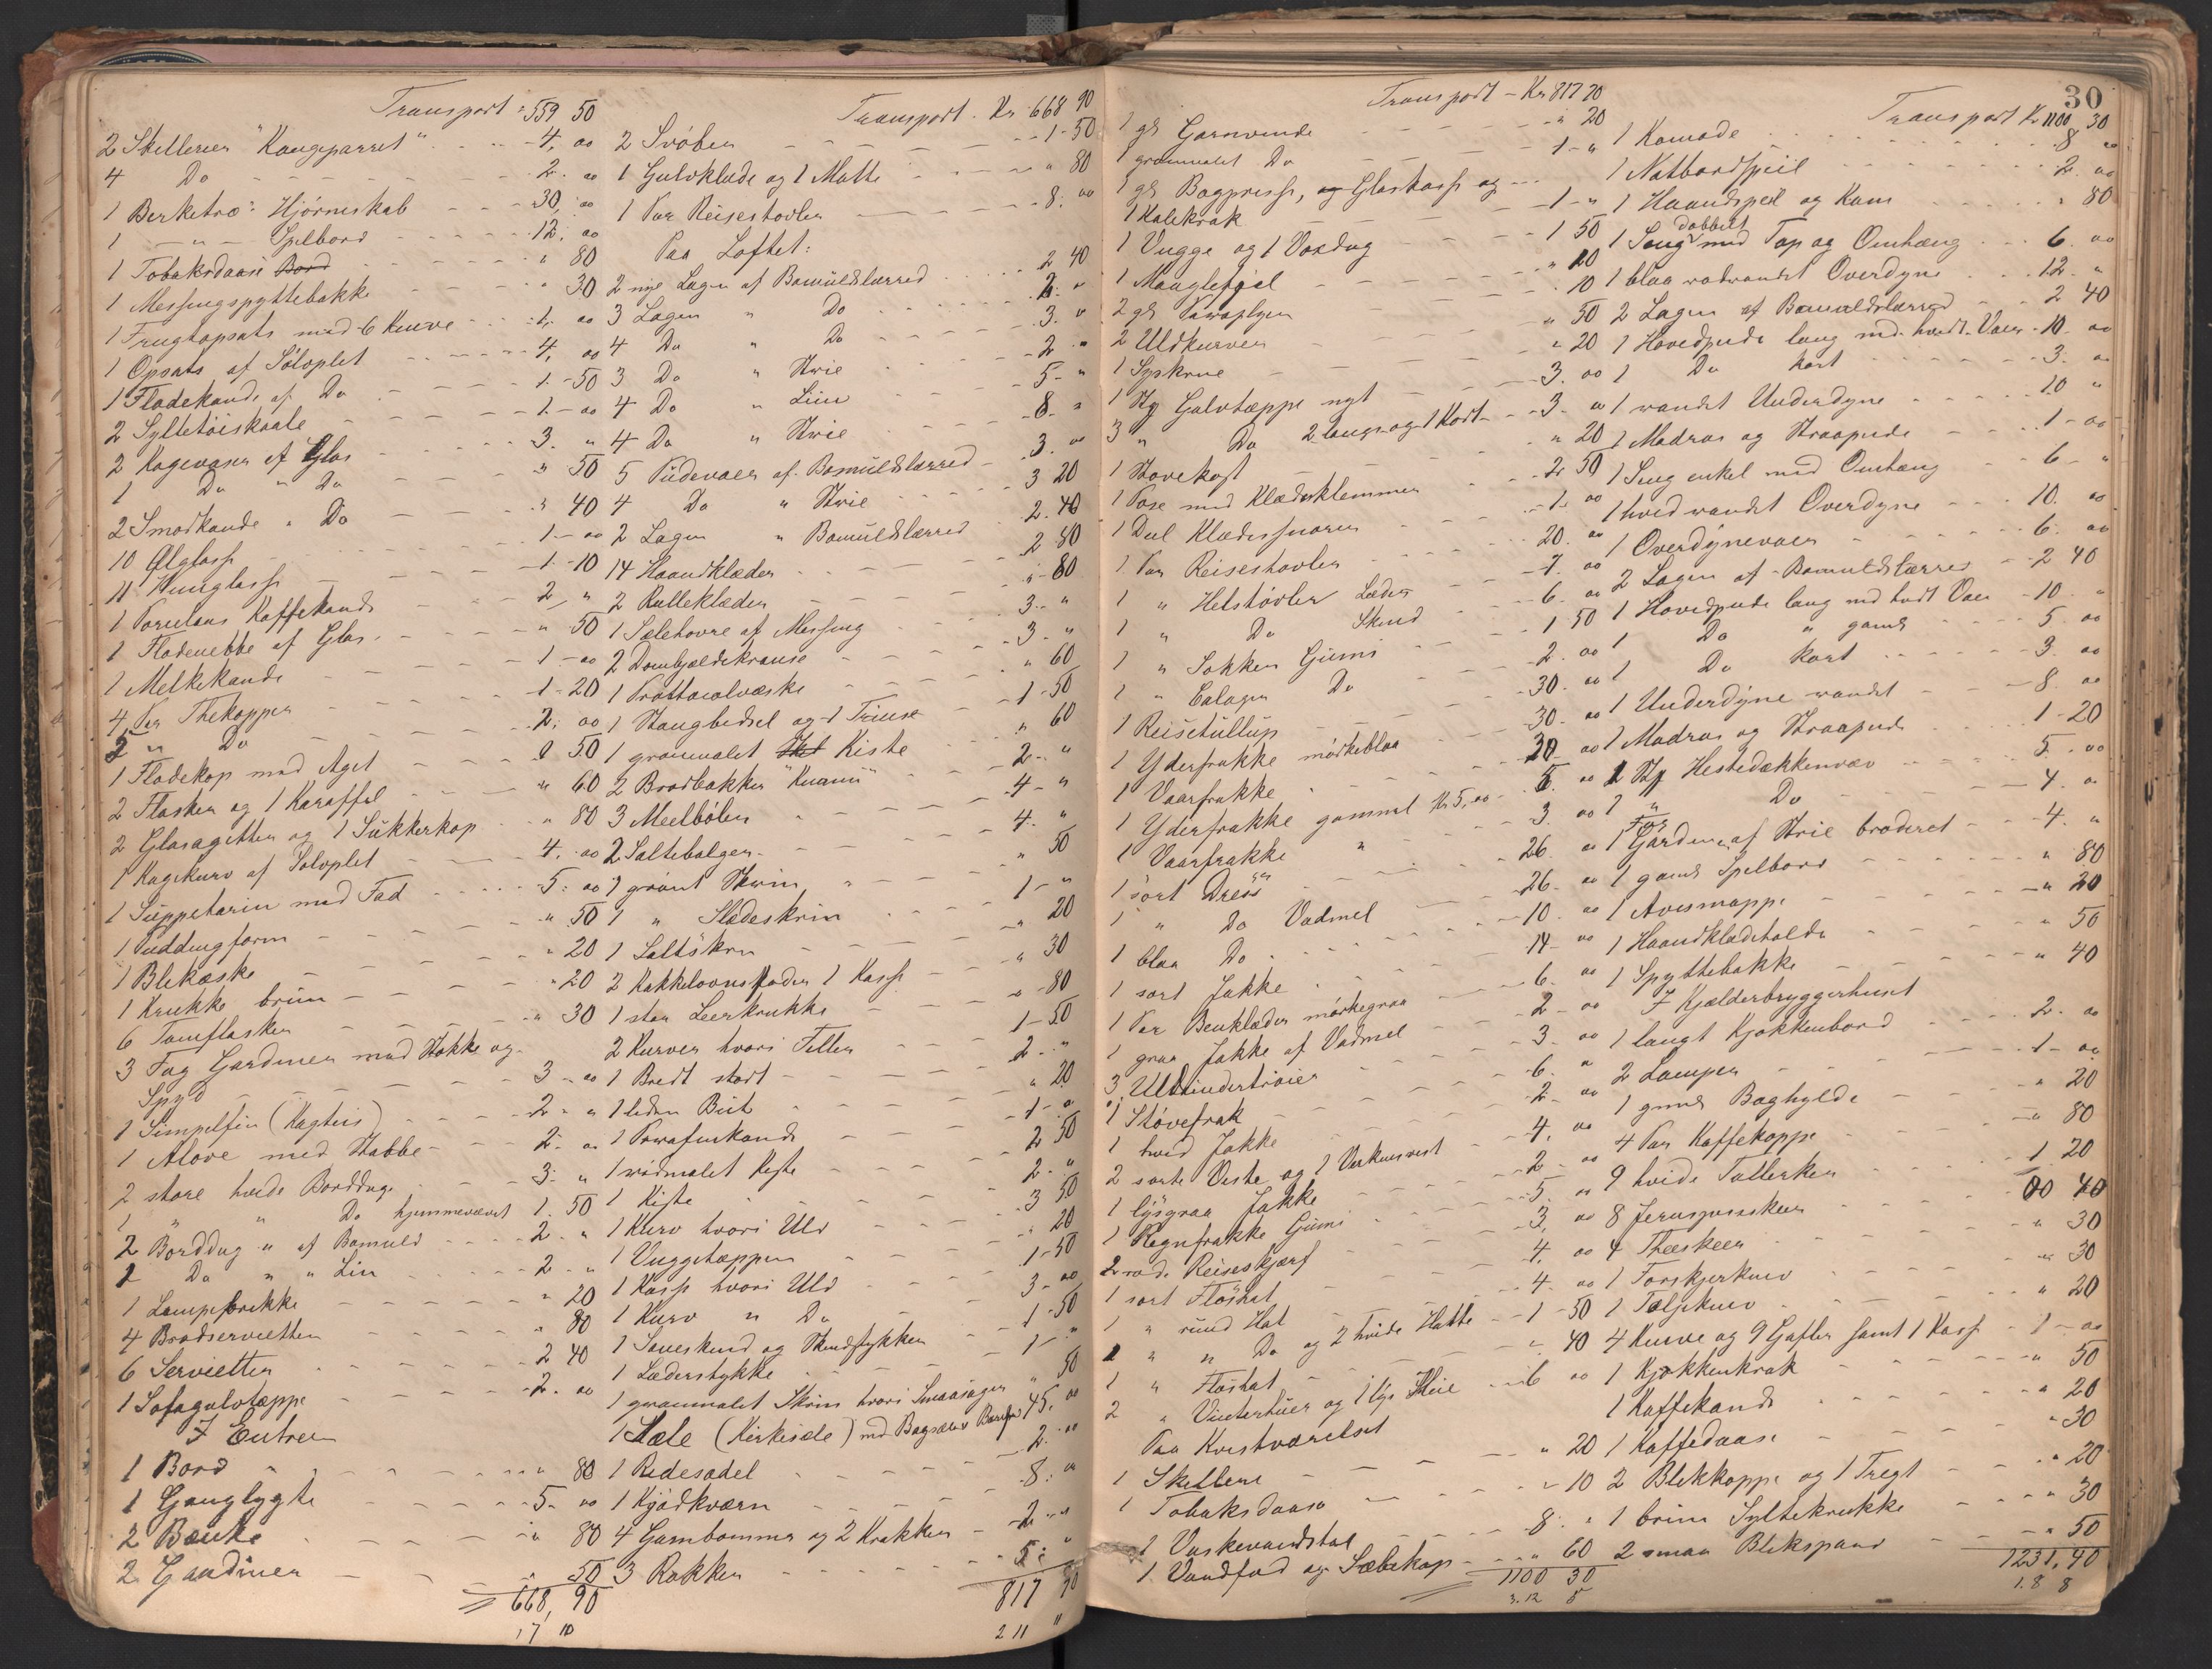 Transport 559 50
2 Skillerier "Kongeparret" 4. 00
4 Do 2. 00
1 Berketræ Hjørneskab 30. 00
1 — " — Spelbord 12. 00
1 Tobaksdaase " 80
1 Messingspyttebakke " 30
1 Frugtopsats med 6 Knive 00
1 Opsats af Sølvplet 4. 00
1 Flødekande af Do 1.-50
2 Syltetøiskaale 1.- 00
2 Kagevaser af Glas 3. "
1 Do " Do " 50
2 Smørkande " Do " 40
10 Ølglass 1- 00
11 glass 1-10
1 Porselans Kaffekande 2 "
1 Flødenebbe af Glas " 50
1 Melkekande 1- 00
4 Par Thekopper 1-20
2 " Do 2. 00
1 Flødekop med Aget 50
2 Flasker og 1 Karaffel " 60
2 Glasagetter og 1 Sukkerkop " 80
1 Kagekurv af Sølvplet 4. 00
1 Suppeterin med Fad 5. 00
1 Puddingform " 50
1 Blekæske " 20
1 Krukke brun " 20
6 Tomflasker " 30
3 Fag Gardiner med Stokke og
Spyd 3 - 00
1 2 - "
1 Alove med Stabbe 2. 00
2 store hvide Borddug 3. "
1 " " Do hjemmevævet 1. 50
2 Borddug " af Bomuld 2. "
1 Do " " Lin 2. "
1 Lampebrikke " 20
4 Brødservietter " 80
6 Servietter 2 40
1 Sofagulvtæppe 2. 00
I Entreen
1 Bord " 80
1 Ganglygte 5. 00
2 Bænke " 80
2 Gardiner 50
668, 90
17 10
Transport. Kr. 668 90
2 Svøber 1-50
1 Gulvklæde og 1 Matte " 80
1 Par Reisestøvler 8. 00
Paa Loftet:
2 nye Lagen af Bomuldslærred 2 40
3 Lagen " Do 2. "
4 Do " Do 3. "
3 Do " Strie 2 - "
4 Do " Lin 5- "
4 Do " Strie 8. "
5 Pudevaer af Bomuldslærred 3. 00
4 Do " Strie 3 20
2 Lagen " Bomuldslærred 2. 40
14 Haandklæder 2 80
2 Rulleklæder 80
1 Sælehovre af Messing 3. "
2 Dombjældekranse 3. "
1 " 60
1 Stangbedsel og 1 Trinse 1-50
1 grønmalet Kiste " 60
2 Brødbakker 2 - "
3 Meelbøler 4 - "
2 Saltebalger 4. "
1 grønt Skrin " 50
1 " Slædeskrin 1 - "
1 Saltskrin " 20
2 Kakkelovnsfoder 1 Kasse " 30
1 stor Leerkrukke " 80
2 Kurver hvori Filler 1-50
1 Bredt stort 2. "
1 liden But " 20
1 Parafinkande 1- "
1 rødmalet Kiste 2 50
1 Kiste 2. "
1 Kurv hvori Uld 3 50
1 Vuggetæppen " 20
1 Kasse hvori Uld 1-50
1 Kurv " Do 3- 00
1 Saueskind og Skindstykker 1-50
1 Læderstykke 1- "
1 grønmalet Skrin hvori Smaasager " 50
1 Sæle (Kirkesele) md 45. 00
1 Ridesadel 2. 00
1 Kjødkværn 8. "
4 Garnbommer og 2 Krakker 2. "
3 Rokker 5: "
817 70
2 11 "
Transport - Kr 817 70
1 gl Garnvinde " 20
1 grønmalet Do 1- "
1 gl Bogpresse, Glaskasse og
1 Halekrak 1 - "
1 Vugge og 1 Voxdug 1 50
1 Manglefjøl " 20
2 gl Paraplyer 10
2 Uldkurver " 50
1 Syskrue " 20
1 Stk Gulvtæppe nyt 3. 00
3 " Do 2 lange og 1 Kort 3. 00
1 Stovekost " 20
1 Pose med Klædesklemmer 50
1 Deel Klædessnorer 1. 00
1 Par Reisestøvler 20. 00
1 " Helstøvler Læder 7. 00
1 " Do Skind 6. 00
1 " Sokker Gumi 1 50
1 " Calager Do 2. 00
1 Reisetullup 30. 00
1 Yderfrakke mørkeblaa 30. 00
1 Vaarfrakke 20 00
1 Yderfrakke gammel Kr 5,00 5. 00
1 Vaarfrakke " 3. 00
1 sort Dress 26. 00
1 " Do Vadmel 26. 00
1 blaa Do 10. 00
1 sort Jakke 14. 00
1 Par Benklæder mørkegraa 6. 00
1 graa Jakke af Vadmel 2 - 00
3 Uldundertrøier 3. 00
1 Støvefrak 6. "
1 hvid Jakke 2. 00
2 sorte Veste og 1 Verkensvest 4. 00
1 lysgraa Jakke 2. 00
1 Regnfrakke Gumi 5. 00
2 røde Reiseskjærf 3. 00
1 sort Floshat 4. 00
1 " rund Hat 4. 00
1 " " Do og 2 hvide Hatte 1 -50
1 " Floshat " 40
2 " Vinterhuer og 1 lys Huve 6 00
Paa Kvistværelset
1 Skilleri " 20
1 Tobaksdaase " 10
1 Vaskevandstol 8. "
1 Vandfad og Sæbekop " 60
1100 30
3.12 5
30
Transport Kr 1100 30
1 Komode 8 00
1 Natbordspeil 2. 00
1 Haandspeil og Kam " 80
1 Seng dobbelt med Top og Omhæng 6. 00
1 blaa rødrandet Overdyne 12. "
2 Lagen af Bomuldslærred 2 40
1 Hovedpude lang md. hvidt Vaer 10. 00
1 Do kort 3. 00
1 randet Underdyne 10 "
1 Madras og Straapude 1 - 00
1 Seng enkel med Omhæng 6 - "
1 hvid randet Overdyne 10. 00
1 Overdynevaer 6. 00
2 Lagen af Bomuldslærred 2 40
1 Hovedpude lang md hvidt Vaer 10. "
1 Do " gamel 5. 00
1 Do kort 3. 00
1 Underdyne randet 8. 00
1 Madras og Straapude 1-20
1 Stk Hestedækkenvæv 5. 00
1 " Do 4. 00
1 Fag Gardiner af Strie broderet 4. "
1 gamel Spelbord " 80
1 Avismappe " 20
1 Haandklædeholder " 50
1 Spyttebakke " 40
I Kjælderbryggerhuset
1 langt Kjøkkenbord 2. 00
2 Lamper 1- 00
1 gamel Boghylde " 20
4 Par Kaffekopper " 80
9 hvide Tallerken 1. 20
8 Jernspiseskeer 40
4 Theskeer " 30
1 Forskjærkniv " 30
1 Tæljekniv " 20
4 Knive og 9 Gafler samt 1 Kasse 1- 00
1 Kjøkkenkrak " 50
1 Kaffekande " 20
1 Kaffedaase " 30
2 Blekkopper og 1 Tregt " 20
1 brun Syltekrukke " 30
2 smaa Blekspand " 50
1231,40
1.8 8